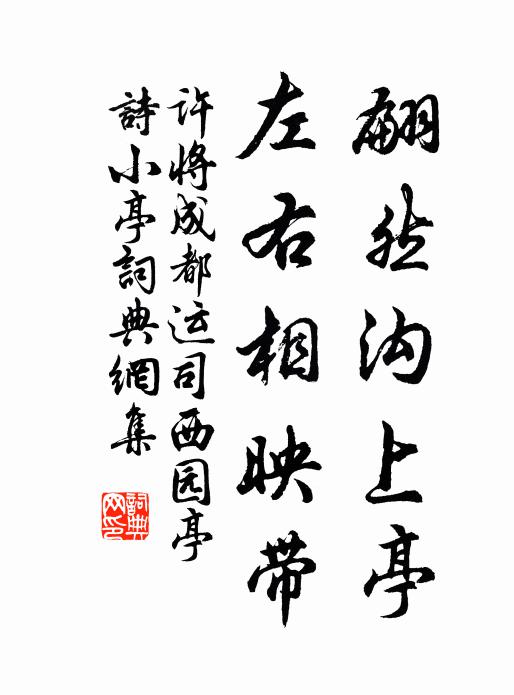 翩然沟上亭
左右相映带
许将成都运司西园亭
詩小亭詞典網集
詞典網印